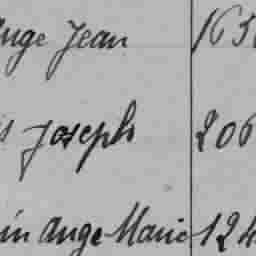 Ange Jean 165
Joseph 206
in Ange Marie 124